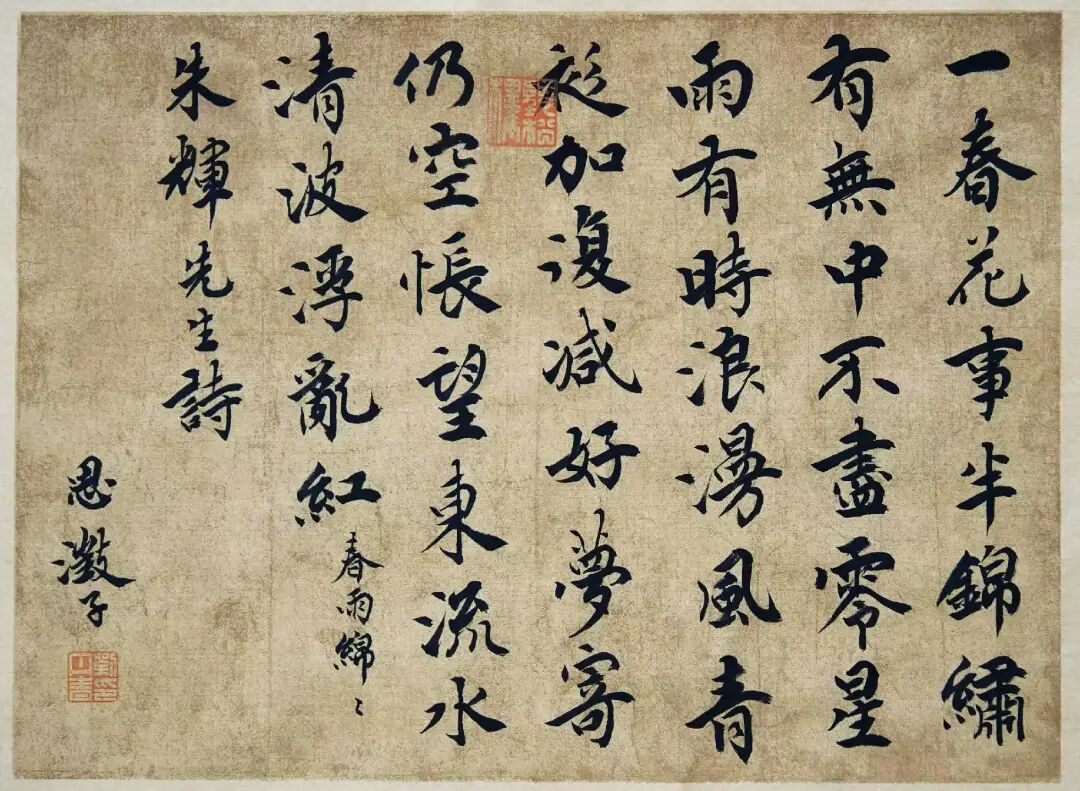 一春花事半錦繡
有無中不盡零星
雨有時浪漫風青
衫加復減好夢寄
仍空悵望東流水
清波浮亂紅
春雨綿〻
朱輝先生詩
思澂子